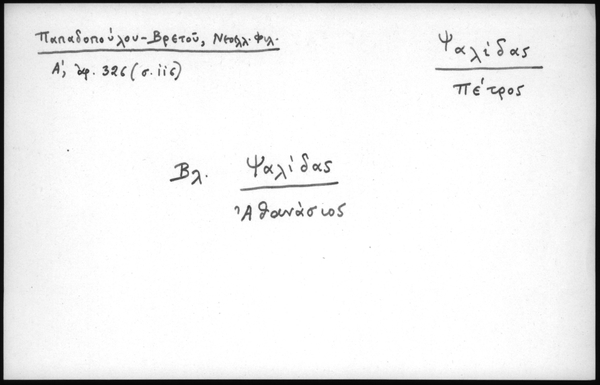 Παπαδοπούλου-Βρετοῦ, Νεοελλ. Φιλ.
Α', ἀρ. 326 (σ. 116)
Ψαλίδας
Πέτρος
Βλ. Ψαλίδας
Ἀθανάσιος